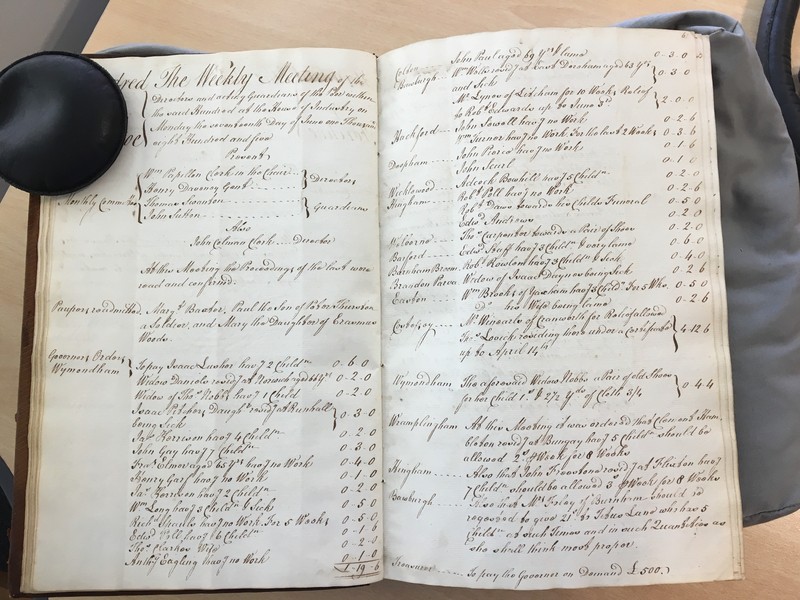 dred The Weekly Meeting of the
Directors and acting Guardians of the Poor within
the said Hundred at the House of Industry on
Monday the seventeenth Day of June one Thousand
eight Hundred and five
Present
Wm Papillon Clerk in the Chair
Henry Daveney Gent
Directors
Monthly Committee
Thomas Swanton
John Sutton
Guardians
Also
John Colman Clerk Director
At this Meeting the Proceedings of the last were
read and confirmed.
Paupers readmitted Mary Baxter, Paul the Son of
a Soldier, and Mary the Daughter of Erasmus
Woods.
Governors Orders
Wymondham To pay Isaac Lusher havg 2 Childn 0-6-0
Widow Daniels residg at Norwich aged 66 yrs 0-2-0
Widow of Thos Nobbs havg 1 Child 0-2-0
Isaac Daughr residg at Runhall
being Sick 0-3-0
Jas havg 4 Childn 0-2-0
John Gay havg 7 Childn 0-3-0
Fras Elmer aged 65 yrs havg no Work 0-4-0
Henry havg no Work 0-1-0
Jas havg 2 Childn 0-2-0
Wm Long havg 5 Childn & Sick 0-5-0
Richd havg no Work For 5 Weeks 0-5-0
Edwd havg 6 Childn 0-1-6
Thos Clarkes Wife 0-2-0
Anthy Eagling havg no Work 0-1-0
1-19-6
Colton John Paul aged 69 yrs & lame 0-3-0
Bawburgh Wm residg at East Dereham aged 63 yrs
and Sick 0-3-0
Mr Lynes of Litcham for 10 Weeks Relief
to Robt Edwards up to June 3rd 2-0-0
Hackford John Sewell havg no Work 0-2-6
Wm Turner havg no Work For the last 2 Weeks 0-3-6
Deopham John Pierce havg no Work 0-1-6
John Searl 0-1-0
Wicklewood Adcock Bowhill havg 5 Childn 0-2-0
Hingham Robt havg no Work 0-2-6
Robt Daws towards his Childs Funeral 0-5-0
Edwd Andrews 0-2-0
Welborne Thos Carpenter towards a Pair of Shoes 0-2-0
Barford Edwd havg 3 Childn & very lame 0-6-0
Barnham Broom Robt havg 3 Childn & Sick 0-4-0
Brandon Parva Widow of Isaac Daynes being Sick 0-2-6
Easton Wm Brooks of Yaxham havg 5 Childn For 5 Wks 0-5-0
Do his Wife being lame 0-2-6
Costessey Mr Winearls of Cranworth for Relief allowed
Thos residing there under a Certificate
up to April 14th 4-12-6
Wymondham The approved Widow Nobbs a Pair of old Shoes
for her Child 1s & 2 1/2 yds of Cloth 3/4 0-4-4
Wramplingham At this Meeting it was ordered that Clement
residg at Bungay havg 5 Childn should be
allowed 2s. P Week for 8 Weeks
Hingham Also that John Freestone residg at Flixton havg
7 Childn should be allowed 3s P Week for 8 Weeks
Bawburgh Also that Mrs of Burnham should be
requested to give 21s to Land who has 5
Childn at such Times and in such Quantities as
she shall think most proper.
Treasurer To pay the Governor on Demand £500.